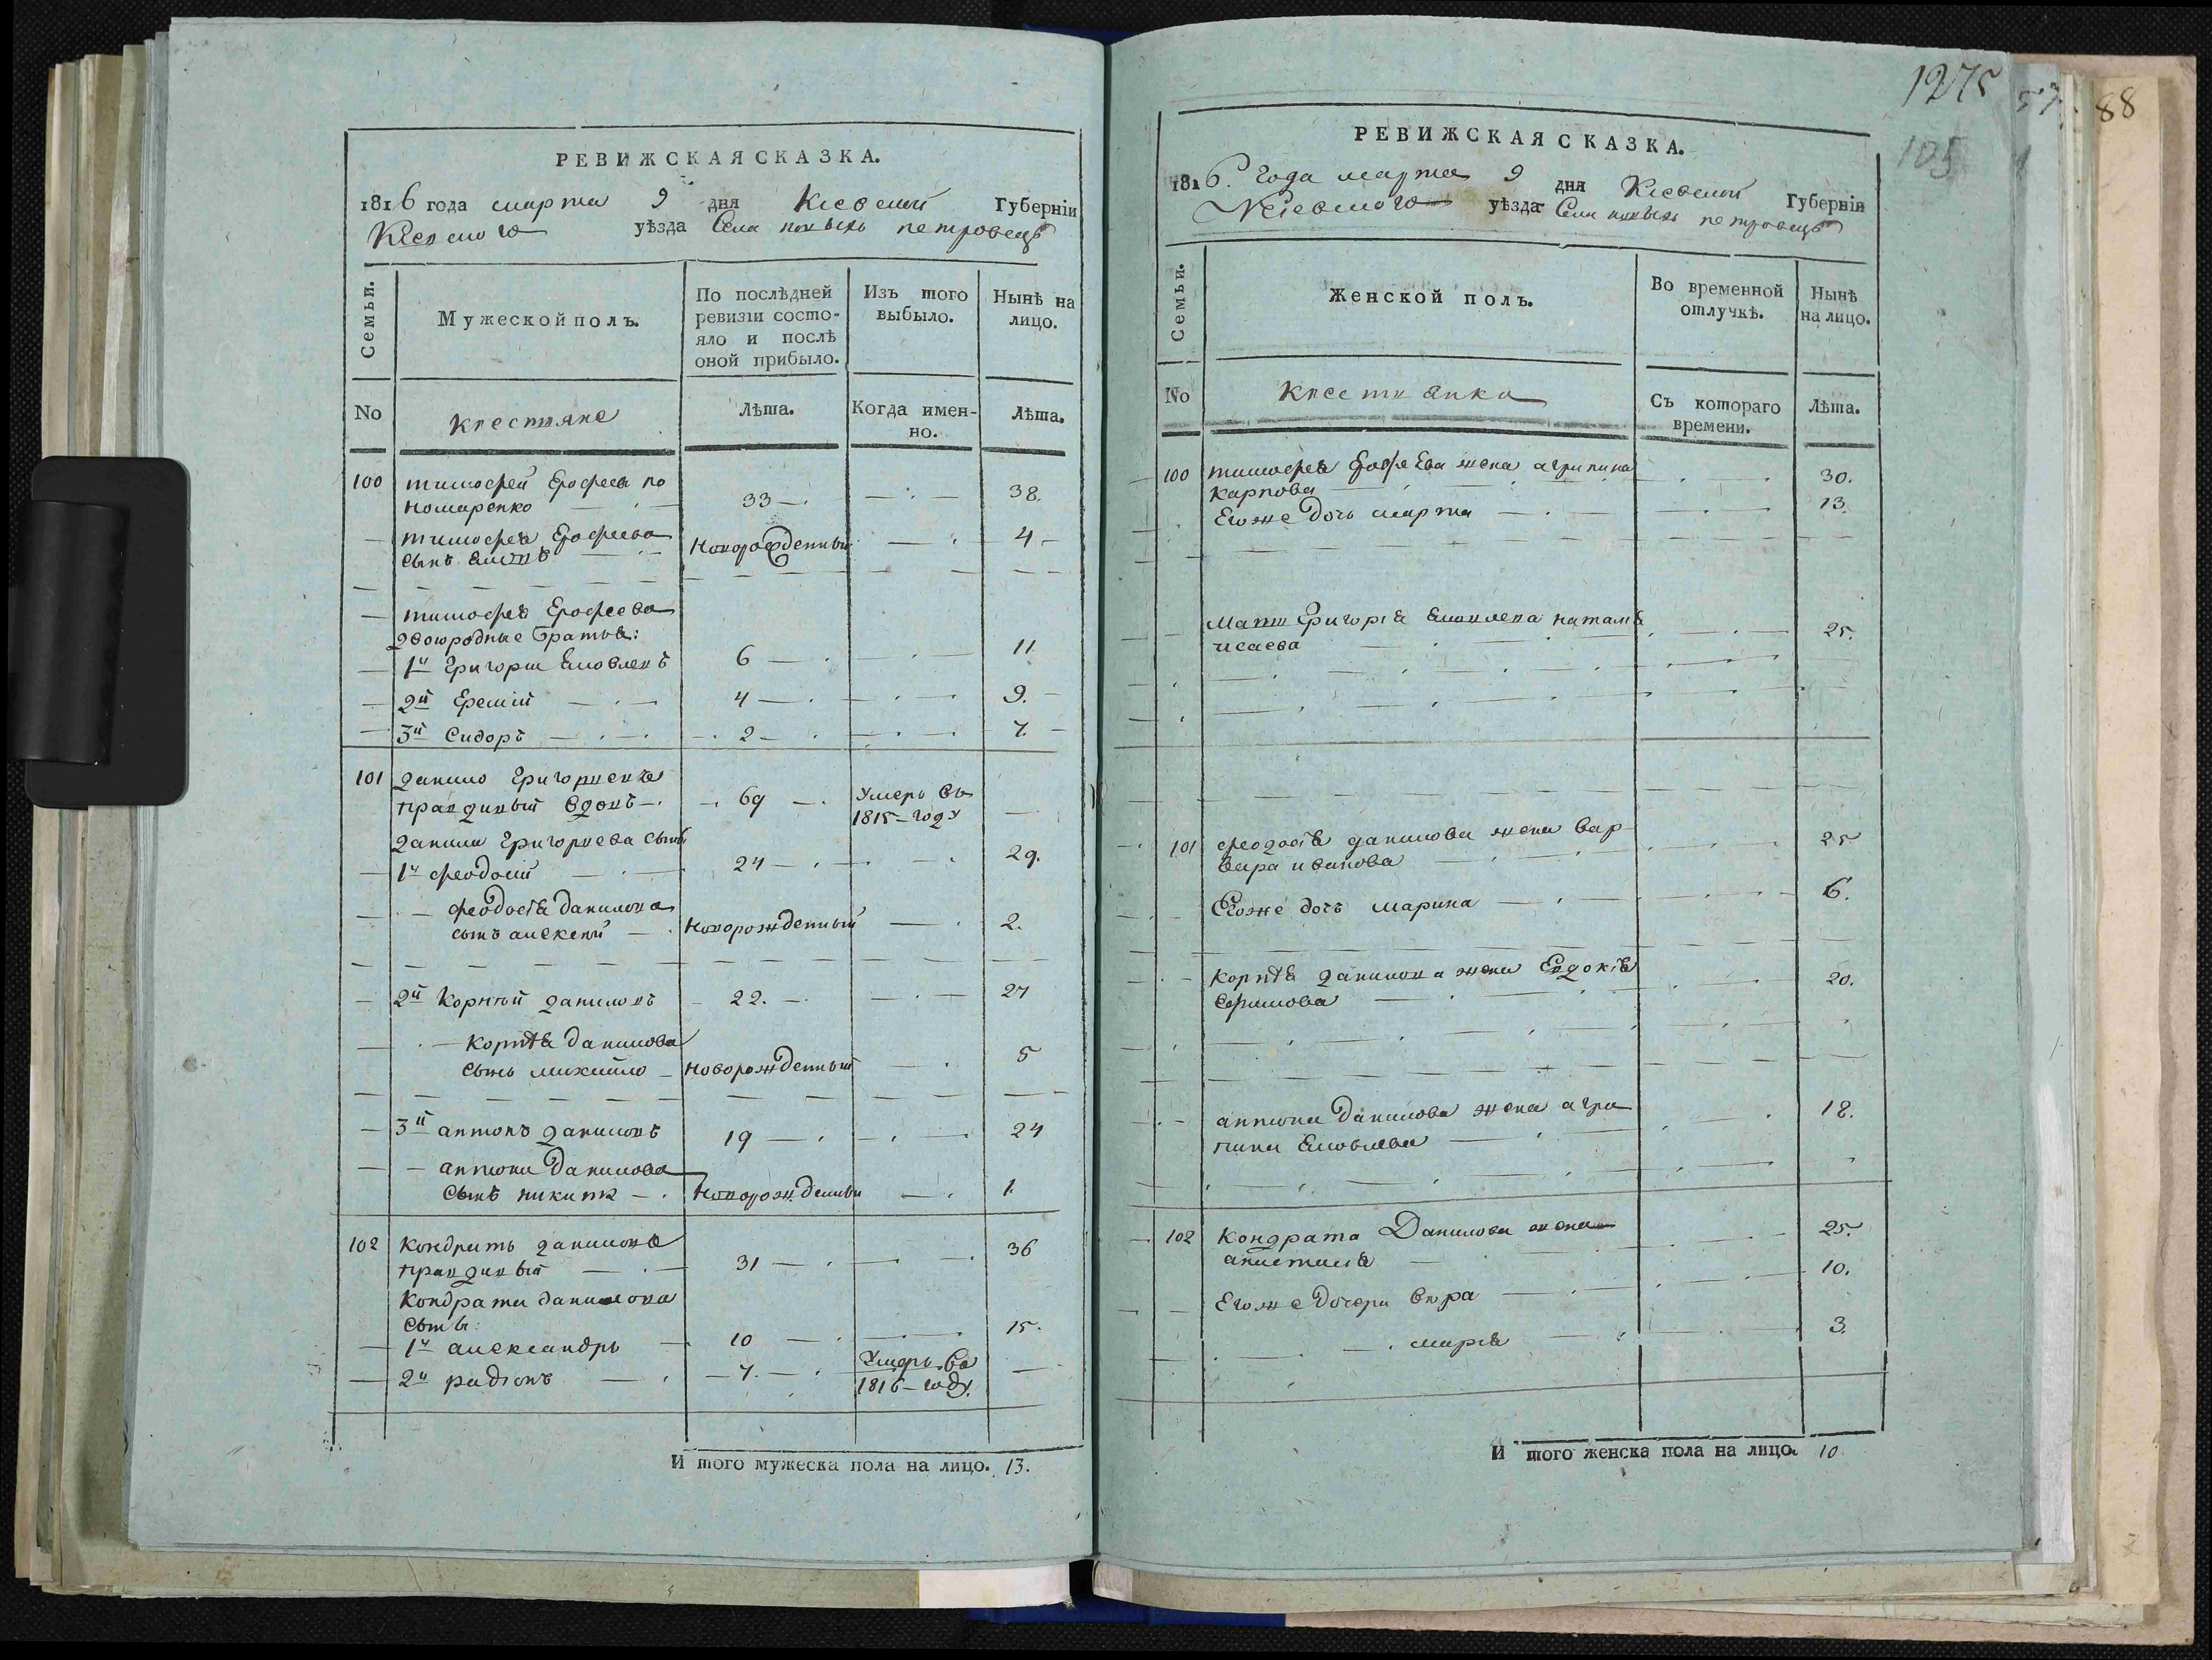 РЕВИЖСКАЯ СКАЗКА.
1816 года марта 9 дня Киевской Губерніи
Киевского уѣзда Села новыхъ петровецъ
Семьи.
Мужеской полъ.
По послѣдней
ревизіи состо-
яло и послѣ
оной прибыло.
Изъ того
выбыло.
Нынѣ на
лицо.
No
крестяне
Лѣта.
Когда имен-
но.
Лѣта.
100 тимофей Ерофеевъ по
номаренко 33 38.
тимофея Ерофеева
сынъ Новорожденный 4
тимофея Ерофеева
двоюродные братья:
1й Григорій Яковлевъ 6 11
2й Еремій 4 9.
3й Сидоръ 2 7.
101 данило Григориевъ
правдивый вдовъ 69 Умеръ въ
1815 году
данила Григориева сыны
1й феодосій 24 29.
феодосія данилова
сынъ алексей Новорожденный 2.
2й Корнѣй даниловъ 22. 27
Корнѣя данилова
сынъ михайло Новорожденный 5
3й антонъ даниловъ 19 24
антона данилова
сынъ никита Новорожденный 1.
102 Кондратъ даниловъ
правдивый 31 36
Кондрата данилова
сыны:
1й александръ 10 15.
2й радіонъ 7. Умеръ въ
1816 году.
И того мужеска пола на лицо. 13.
1275
57. 88
105
РЕВИЖСКАЯ СКАЗКА.
1816. года марта 9 дня Киевской Губерніи
Киевского уѣзда Села новыхъ петровецъ
Семьи.
Женской полъ.
Во временной
отлучкѣ.
Нынѣ
на лицо.
No
Крестянка
Съ котораго
времени.
Лѣта.
100 тимофея Ерофеева жена агрипина
Карпова 30.
Егоже дочь марта 13.
Мать Григорія Яковлева наталя
исаева 25.
101 феодосія данилова жена вар-
вара иванова 25
Егоже дочь марина 6.
Корнѣя данилова жена Евдокія
Ефимова 20.
антона данилова жена агри
пина Яковлева 18.
102 Кондрата Данилова жена
анастасія 25.
Егоже дочери вѣра 10.
марія 3.
И того женска пола на лицо. 10